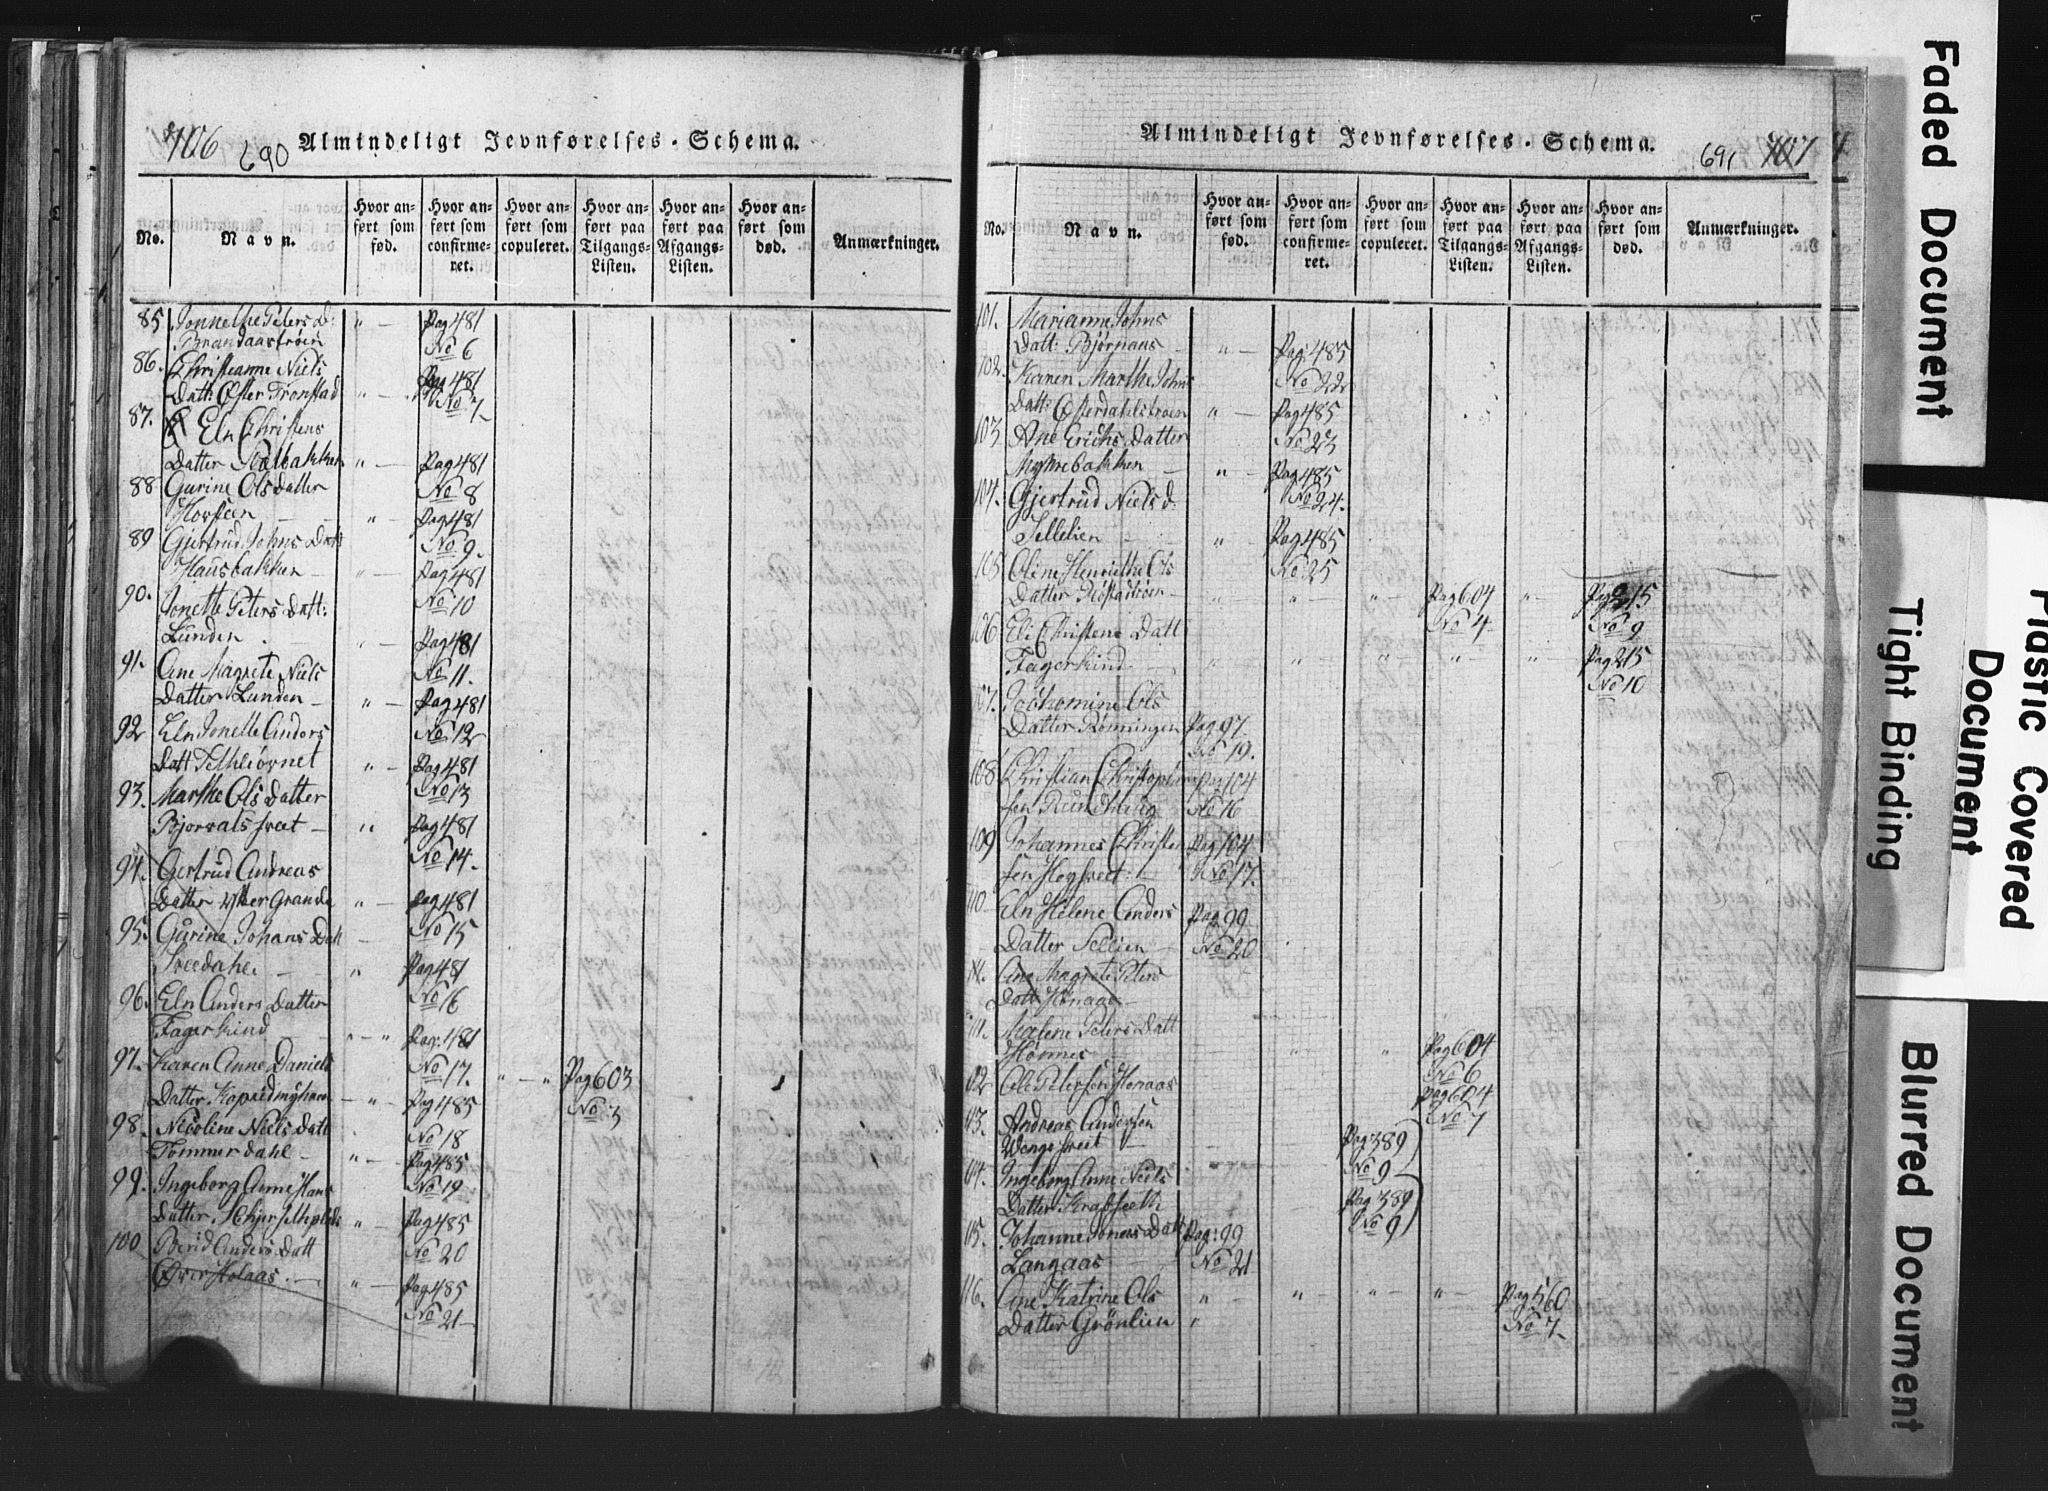 406 690 Almindeligt Jevnførelses-Schema.
No.
Navn.
Hvor anført som fød.
Hvor anført som confirmeret.
Hvor anført som copuleret.
Hvor anført paa Tilgangs-Listen.
Hvor anført paa Afgangs-Listen.
Hvor anført som død.
Anmærkninger.
85 Jonnethe Peters D:
Brandaastrøen " — Pag 481
No 6
86. Christianne Niels
Datt: Øster Tronstad " — Pag 481
No 7
87. Eln Christens
Datter " — Pag 481
No 8
88 Gurine Ols Datter
Hovseen " — Pag 481
No 9
89 Gjertrud Johns Datt
Hausbakken " — Pag 481
No 10
90. Jonette Peters Datt:
Lunden " — Pag 481
No 11.
91. Ane Magrete Niels
Datter Lunden " — Pag 481
No 12
92 Eln Jonette Anders
Datt " — Pag 481
No 13
93. Marthe Ols Datter
" Pag 481
No 14.
94. Gertrud Andreas
Datter Grande " — Pag 481
No 15
95. Gurine Johans Datt
Svedahl " Pag 481
No 16
96. Eln Anders Datter
Fagerhind " — " Pag: 481
No 17.
97. Karen Anne Daniels " — " Pag 603
Datter " Pag 485 No 3
No 18
98. Nicoline Niels Datt
Tommerdahl " — Pag 485
No 19
99. Ingeborg Anne Hans
Datter " — Pag 485
No 20
100 Berid Anders Datt
Øver Holaas " — Pag 485
No 21
Almindeligt Jevnførelses-Schema. 691 407
No.
Navn.
Hvor anført som fød.
Hvor anført som confirmeret.
Hvor anført som copuleret.
Hvor anført paa Tilgangs-Listen.
Hvor anført paa Afgangs-Listen.
Hvor anført som død.
Anmærkninger.
101. Marianne Johns
Datt: Bjørnaas " — Pag 485
No 22
102. Karen Marthe Johns
Datt: Østerdahlstrøen " — Pag 485
No 23
103 Ane Erichs Datter
Myhrebakken " — Pag 485
No 24.
104. Gjertrud Niels D:
Sellelien " — Pag 485
No 25
105 Oline Henriethe Ols
Datter " " " Pag 604 " Pag 215
No 4 No 9
106 Eli Christens Datt
Fagerhind " " " " " Pag 215
No 10
107. Jochomine Ols
Datter Rønningen Pag 97
No 19.
108 Christian Christophersen Pag 104
No 16
109 Johannes Christen Pag 104
sen No 17.
110 Eln Helene Anders Pag 99
Datter Sellien No 20
Ane Magrete Peters
Datt
111. Malene Peters Datt
" " Pag 604
No 6
112 Ole Petersen Honaas Pag 604
No 7
113. Andreas Andersen
Pag 389
No 9
114. Ingeborg Anne Niels
Datter Pag 389
No 9
115. Johanne Jonas Datt Pag: 99
Langaas No 21
116. Ane Katrine Ols " " " " Pag 560
Datter Grønlien " No 7
Faded Document
Tight Binding
Plastic Covered Document
Blurred Document